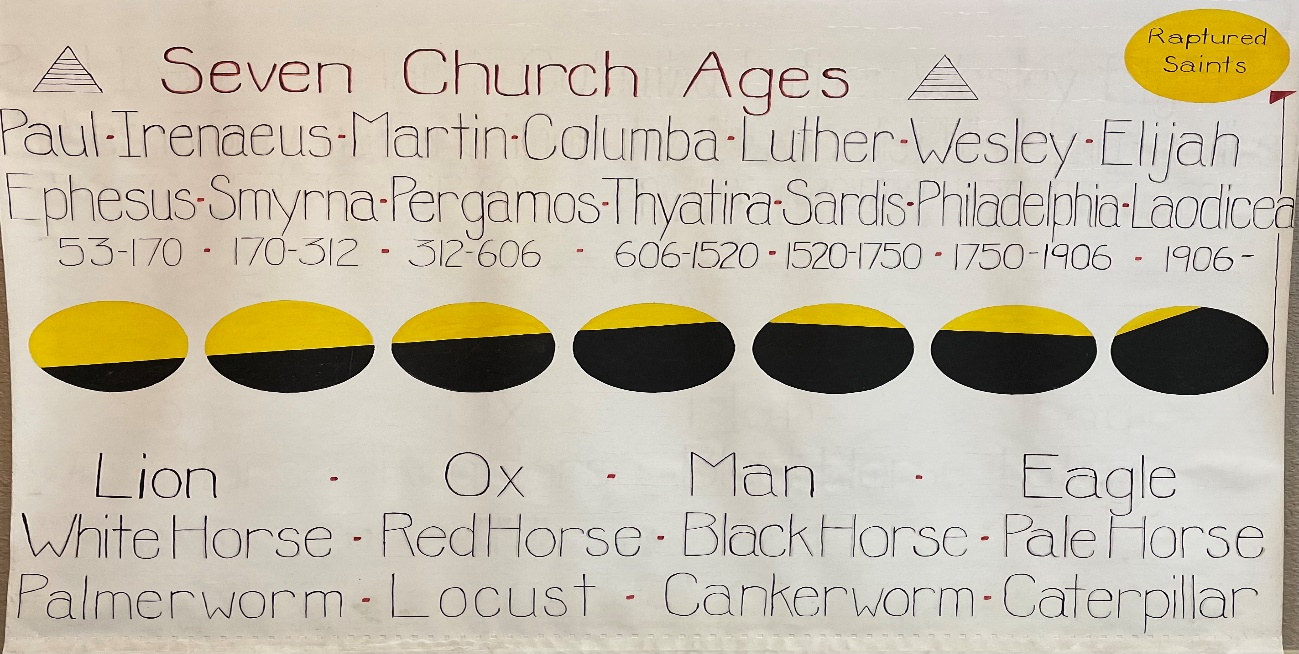 Raptured
Saints
Seven Church Ages
Paul-Irenaeus-Martin-Columba-Luther-Wesley-Elijah
Ephesus-Smyrna-Pergamos-Thyatira-Sardis-Philadelphia-Laodicea
53-170 - 170-312 - 312-606 - 606-1520 - 1520-1750 - 1750-1906 - 1906-
Lion - Ox - Man - Eagle
White Horse - Red Horse - Black Horse - Pale Horse
Palmerworm - Locust - Cankerworm - Caterpillar